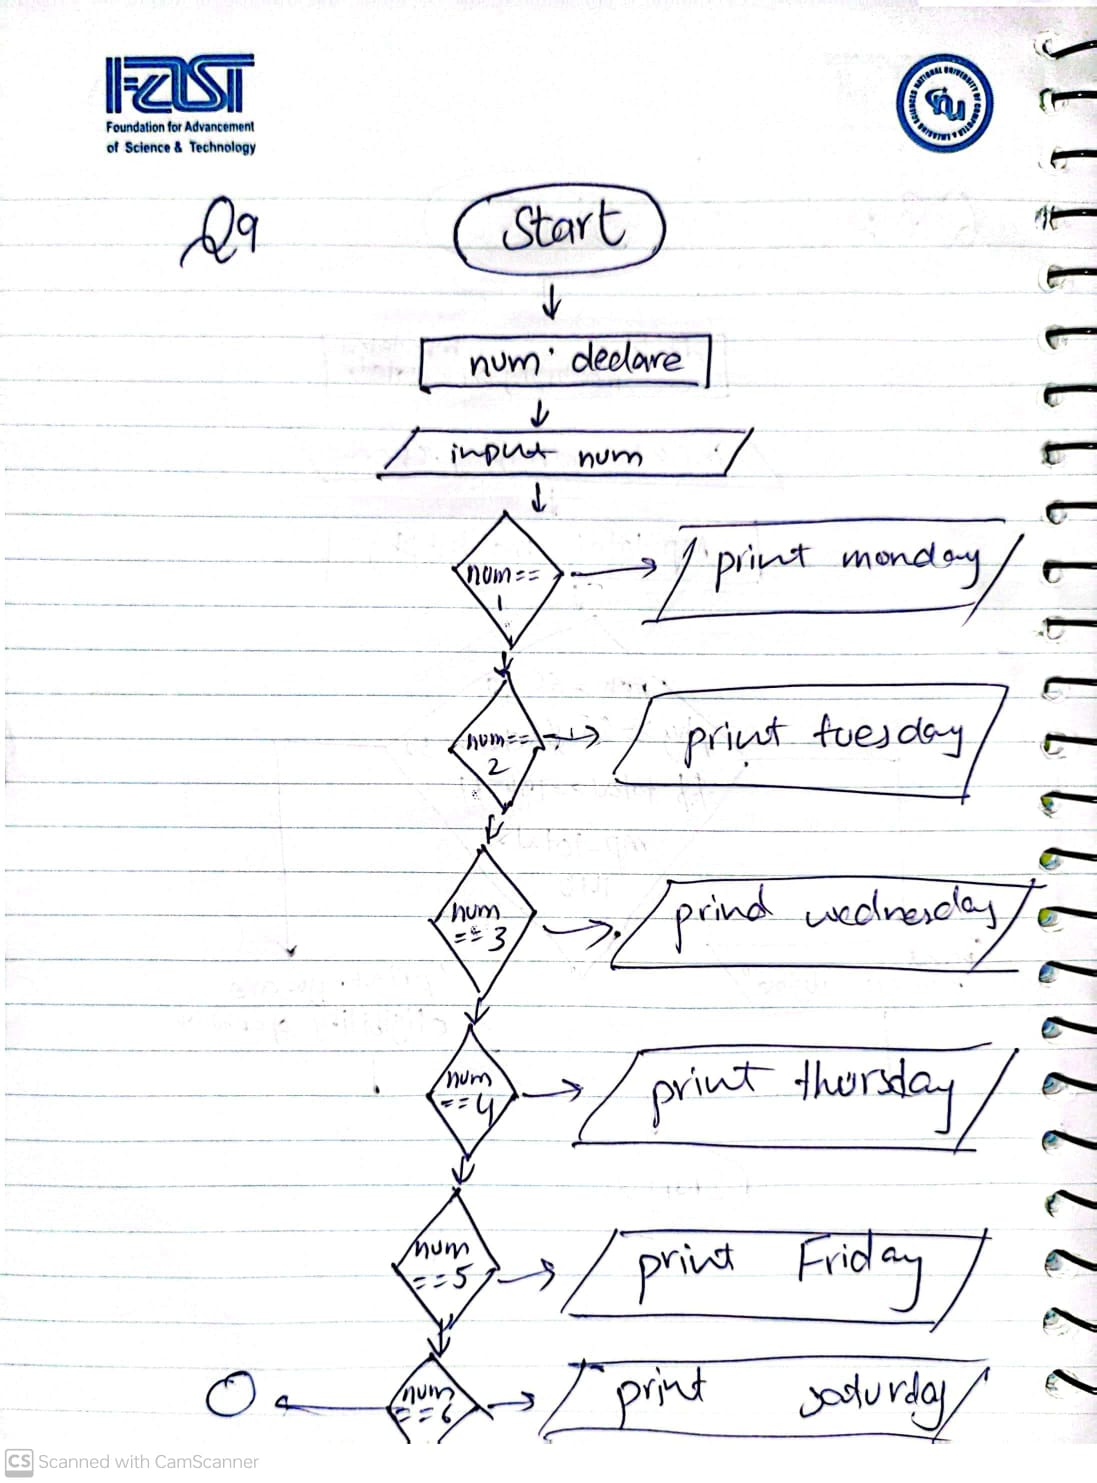 FAST
Foundation for Advancement
of Science & Technology
NATIONAL UNIVERSITY OF COMPUTER & EMERGING SCIENCES
Q9
Start
num declare
input num
num==
1
print monday
num==
2
print tuesday
num
==3
prind wednesday
num
==4
print thursday
num
==5
print Friday
num
==6
print saturday
CS Scanned with CamScanner